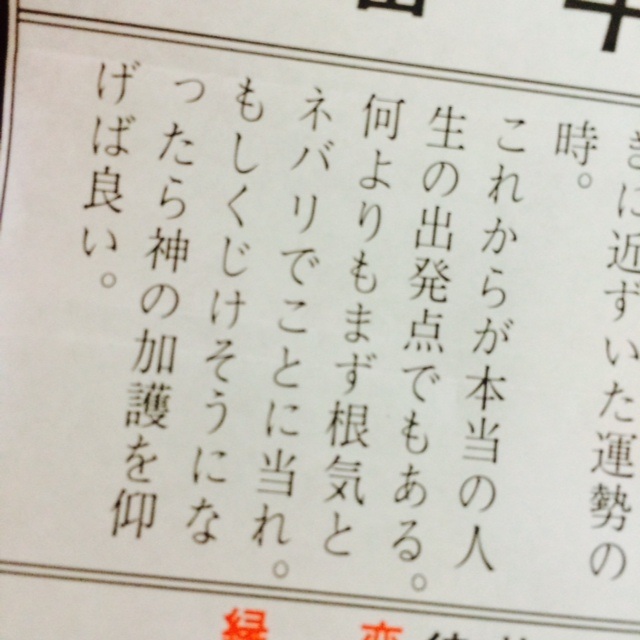 に近すいた運勢の
時。
これからが本当の人
生の出発点でもある。
何よりもまず根気と
ネバリでことに当れ。
もしくじけそうにな
つたら神の加護を仰
げば良い。